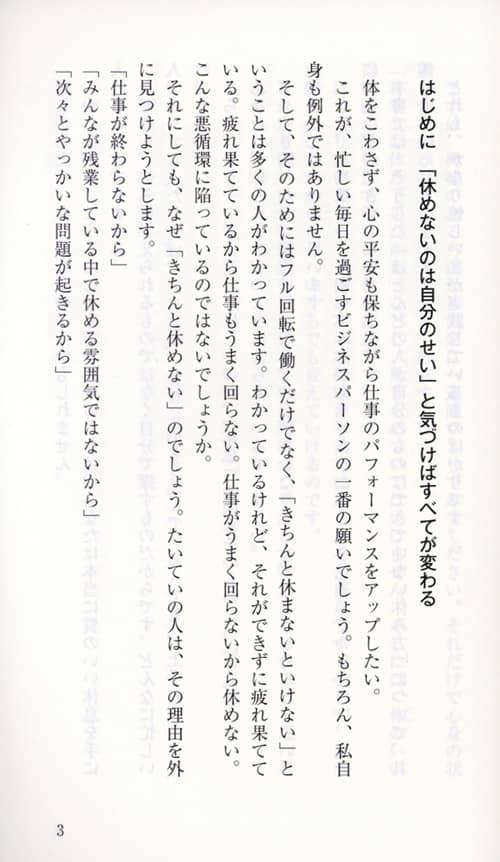 はじめに 「休めないのは自分のせい」と気づけばすべてが変わる
体をこわさず、心の平安も保ちながら仕事のパフォーマンスをアップしたい。
これが、忙しい毎日を過ごすビジネスパーソンの一番の願いでしょう。もちろん、私自
身も例外ではありません。
そして、そのためにはフル回転で働くだけでなく、「きちんと休まないといけない」と
いうことは多くの人がわかっています。わかっているけれど、それができずに疲れ果てて
いる。疲れ果てているから仕事もうまく回らない。仕事がうまく回らないから休めない。
こんな悪循環に陥っているのではないでしょうか。
それにしても、なぜ「きちんと休めない」のでしょう。たいていの人は、その理由を外
に見つけようとします。
「仕事が終わらないから」
「みんなが残業している中で休める雰囲気ではないから」
「次々とやっかいな問題が起きるから」
3